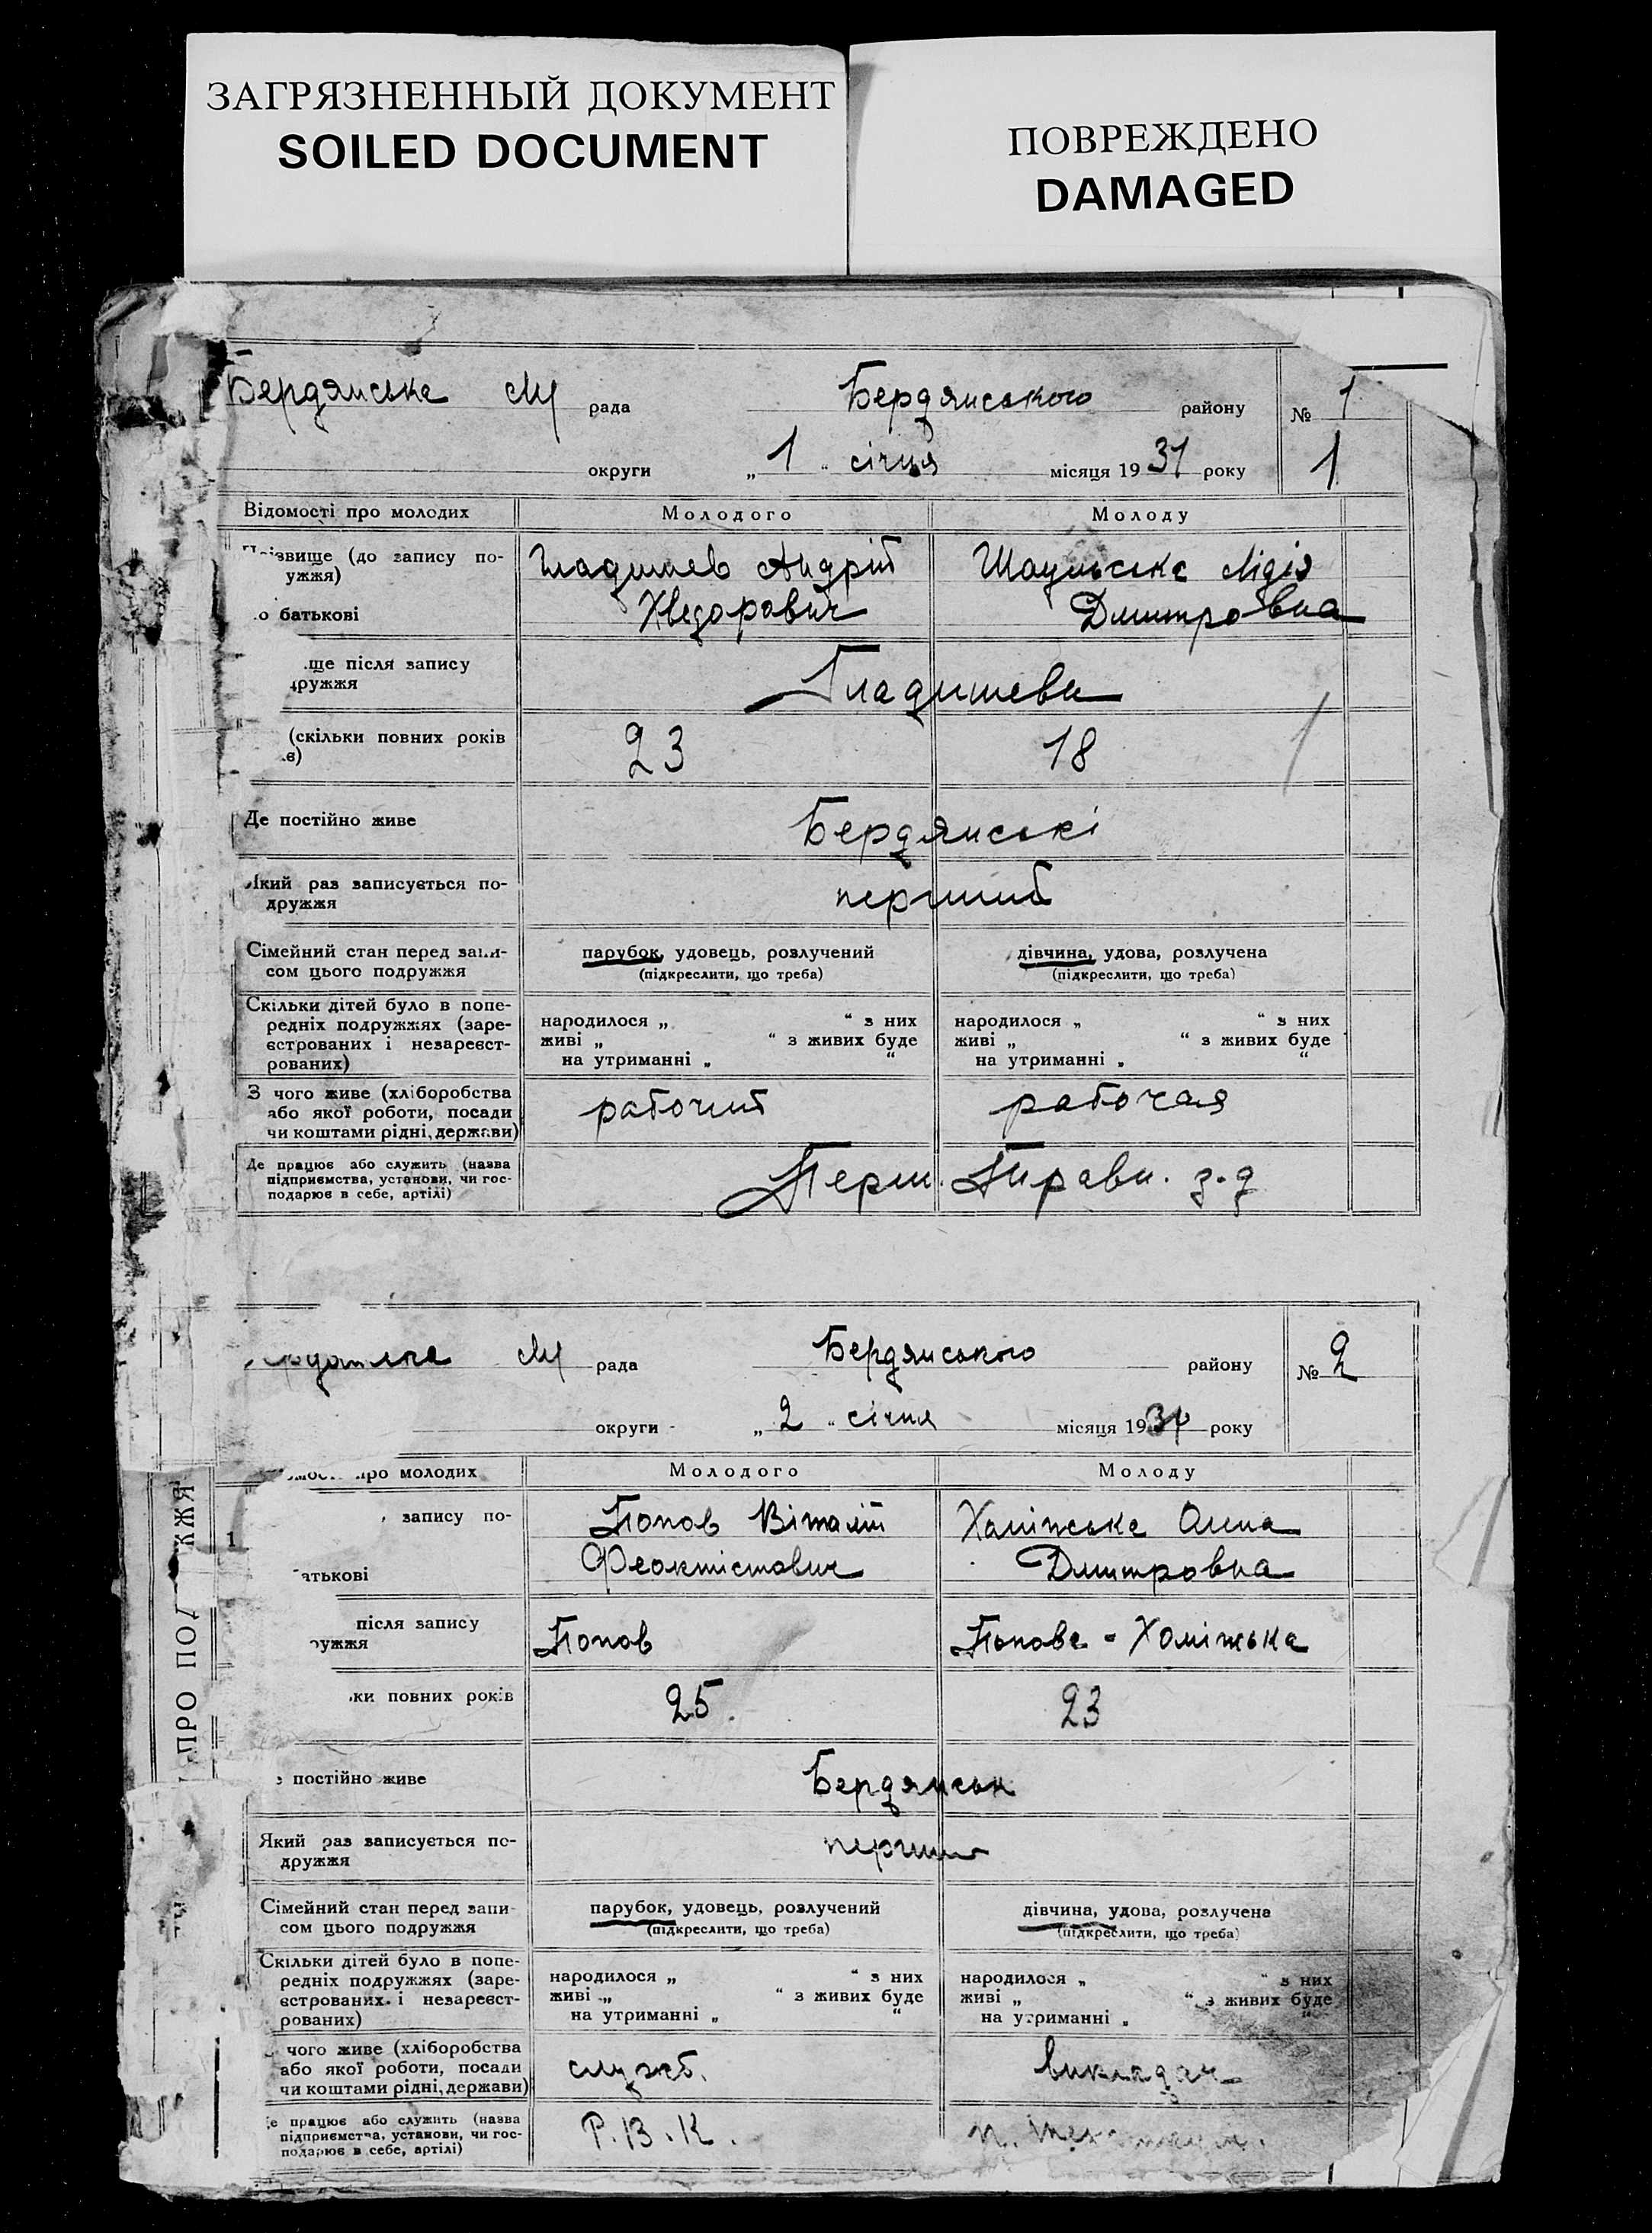 ЗАГРЯЗНЕННЫЙ ДОКУМЕНТ
SOILED DOCUMENT
ПОВРЕЖДЕНО
DAMAGED
Бердянська рада Бердянського району № 1
округи „ 1 “ січня місяця 1931 року 1
Відомості про молодих Молодого Молоду
ізвище (до запису по- Гладишев Андрій Лідія
ужжя)
о батькові Хведорович Дмитровна
ще після запису Гладишеви
дружжя
(скільки повних років 23 18
є)
Де постійно живе Бердянські
Який раз записується по- перший
дружжя
Сімейний стан перед запи- парубок, удовець, розлучений дівчина, удова, розлучена
сом цього подружжя (підкреслити, що треба) (підкреслити, що треба)
Скільки дітей було в попе-
редніх подружжях (заре- народилося „ “ з них народилося „ “ з них
єстрованих і незареєст- живі „ “ з живих буде живі „ “ з живих буде
рованих) на утриманні „ “ на утриманні „ “
З чого живе (хліборобства рабочий рабочая
або якої роботи, посади
чи коштами рідні, держави)
Де працює або служить (назва Перш.
підприємства, установи, чи гос-
подарює в себе, артілі)
рада Бердянського району № 2
округи „ 2 “ січня місяця 1931 року
про молодих Молодого Молоду
запису по- Попов Віталій Хоміжська Анна
1
атькові Феоктістович Дмитровна
після запису Попов Попова - Хоміжська
ружжя
ки повних років 25. 23
постійно живе Бердянськ
Який раз записується по- перший
дружжя
Сімейний стан перед запи- парубок, удовець, розлучений дівчина, удова, розлучена
сом цього подружжя (підкреслити, що треба) (підкреслити, що треба)
Скільки дітей було в попе-
редніх подружжях (заре- народилося „ “ з них народилося „ “ з них
єстрованих і незареєст- живі „ “ з живих буде живі „ “ з живих буде
рованих) на утриманні „ “ на утриманні „ “
чого живе (хліборобства служб. викладач
або якої роботи, посади
чи коштами рідні, держави)
е працює або служить (назва Р.В.К.
підприємства, установи, чи гос-
подарює в себе, артілі)
ПРО ПОД
ЖЖЯ